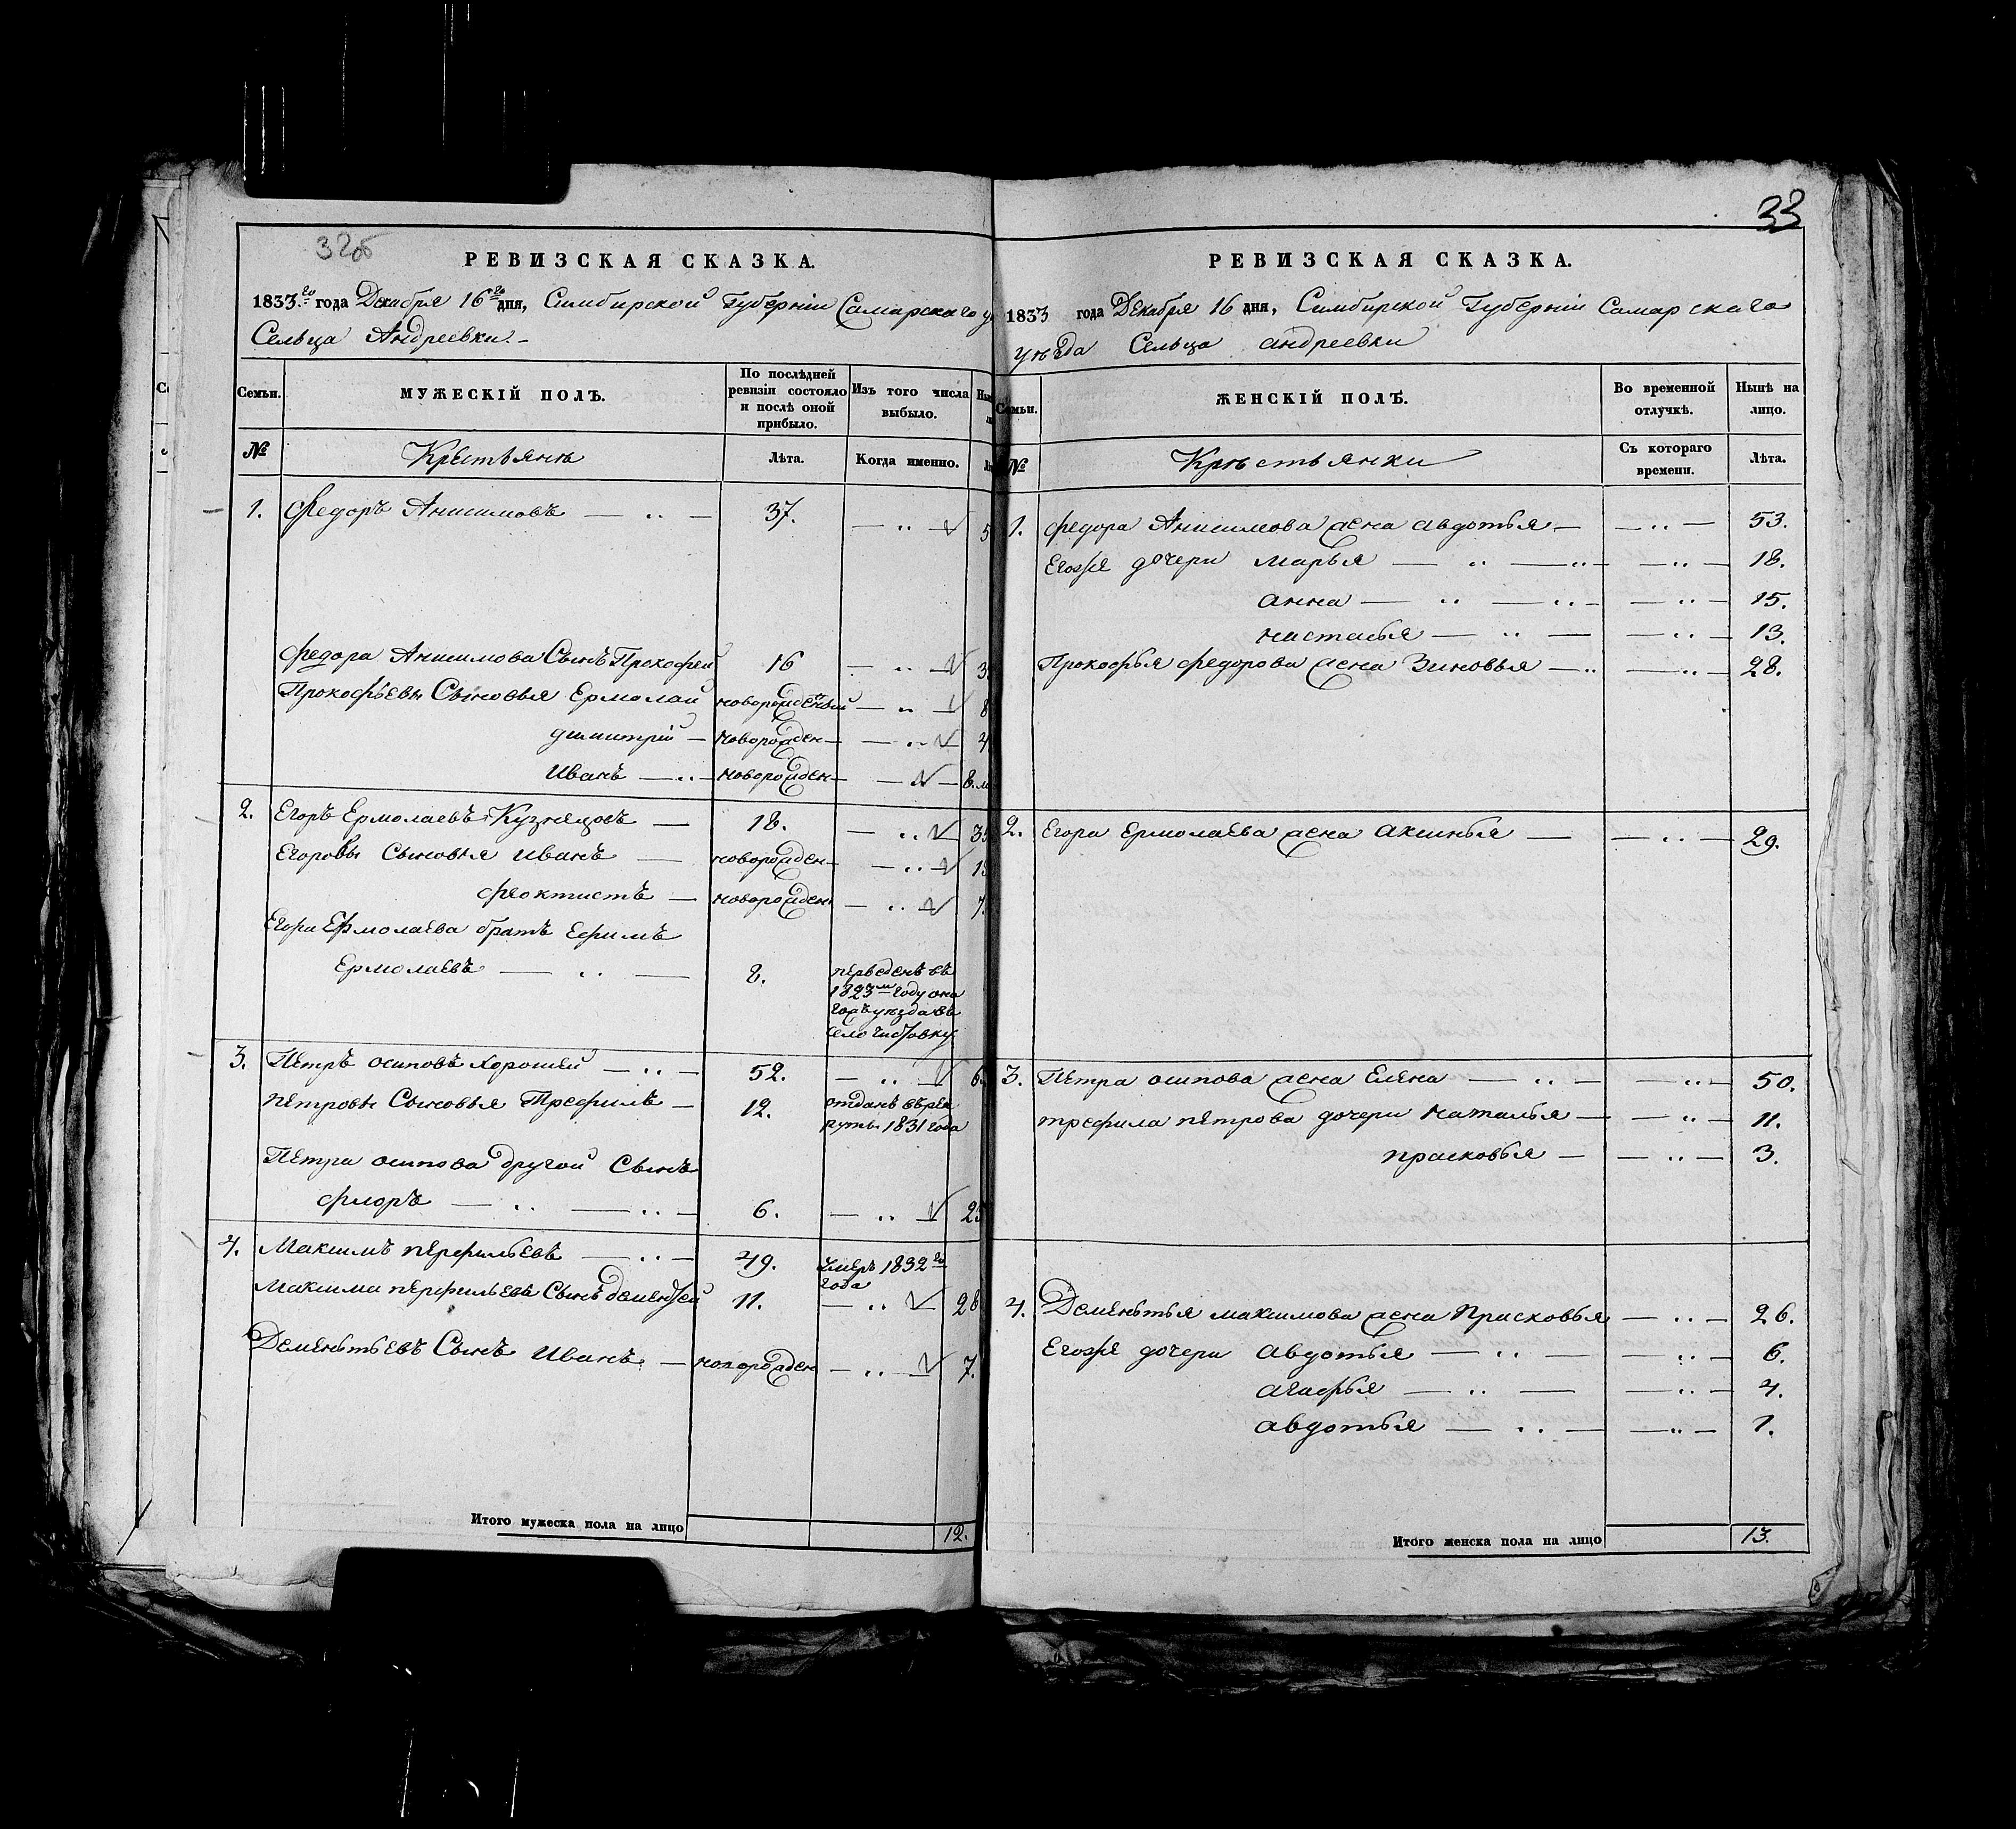 32об
РЕВИЗСКАЯ СКАЗКА.
1833.го года Декабря 16го дня, Симбирской Губерніи Самарскаго у
Сельца Андреевки.
Семьи.
МУЖЕСКІЙ ПОЛЪ.
По послѣдней
ревизіи состояло
и послѣ оной
прибыло.
Изъ того числа
выбыло.
№
Крестьянѣ
Лѣта.
Когда именно.
1. Федоръ Анисимовъ 37. 5
Федора Анисимова Сынъ Прокофей 16 3
Прокофьевы Сыновья Ермолай новорожденный 8
димитрій новорожден 4
Иванъ новорожден 8.м
2. Егоръ Ермолаевъ Кузнецовъ 18. 3
Егоровы Сыновья Иванъ новорожден 1
феоктистъ новорожден 7.
Егора Ермолаева братъ Ефимъ
Ермолаевъ 8. переведенъ въ
1823м году она
гоже уезда въ
село Чистовку
3. Петръ осиповъ Хорошей 52. 6
петровы Сыновья Трефилъ 12. отданъ въ рек
руты 1831 года
Петра осипова другой Сынъ
флоръ 6. 25
4. Максимъ перфильевъ 49. Умеръ 1832го
года
Максима перфильевъ Сынъ дементей 11. 28
Дементьевъ Сынъ Иванъ новорожден 7.
Итого мужеска пола на лицо 12.
33
РЕВИЗСКАЯ СКАЗКА.
1833 года Декабря 16 дня, Симбирской Губерніи Самарскаго
уѣзда Сельца андреевки
Семьи.
ЖЕНСКІЙ ПОЛЪ.
Во временной
отлучкѣ.
Нынѣ на
лицо.
№
Крѣстьянки
Съ котораго
времени.
Лѣта.
1. федора Анисимова жена авдотья 53.
Егожѣ дочери марья 18.
анна 15.
насталья 13.
Прокофья федорова жена Зиновья 28.
2. Егора Ермолаева жена аксинья 29.
3. Петра осипова жена Елена 50.
трефила петрова дочери наталья 11.
прасковья 3.
4. Дементья максимова жена Прасковья 26.
Егожѣ дочери авдотья 6.
агафья 4.
авдотья 1.
Итого женска пола на лицо 13.